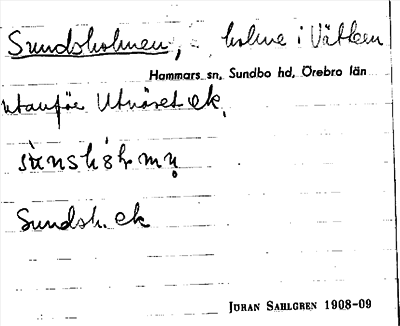 Sundsholmen, holme i Vättern
Hammars sn, Sundbo hd, Örebro län
utanför Utnäset ek.
Sundsh. ek
JÖRAN SAHLGREN 1908-09